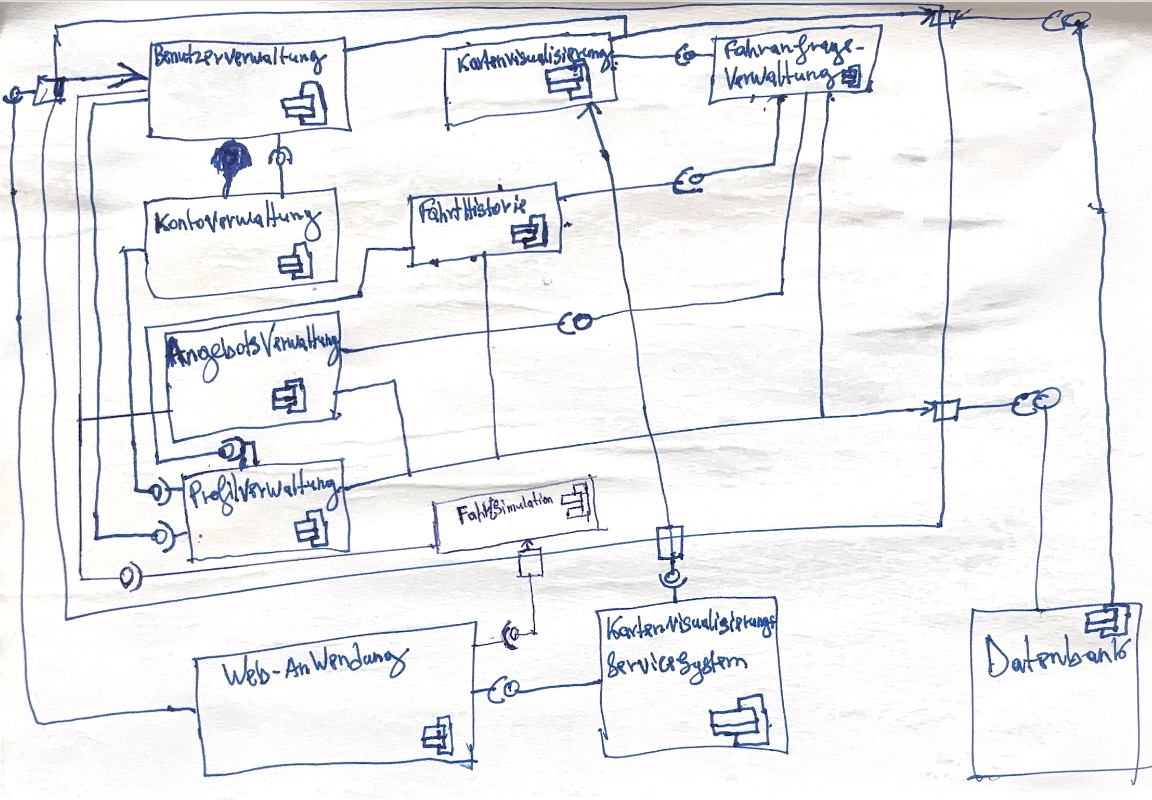 Benutzerverwaltung
Kartenvisualisierung
Fahranfrage-
Verwaltung
KontoVerwaltung
FahrtHistorie
AngebotsVerwaltung
ProfilVerwaltung
Fahrtsimulation
Web-AnWendung
Kartenvisualisierungs
ServiceSystem
Datenbank